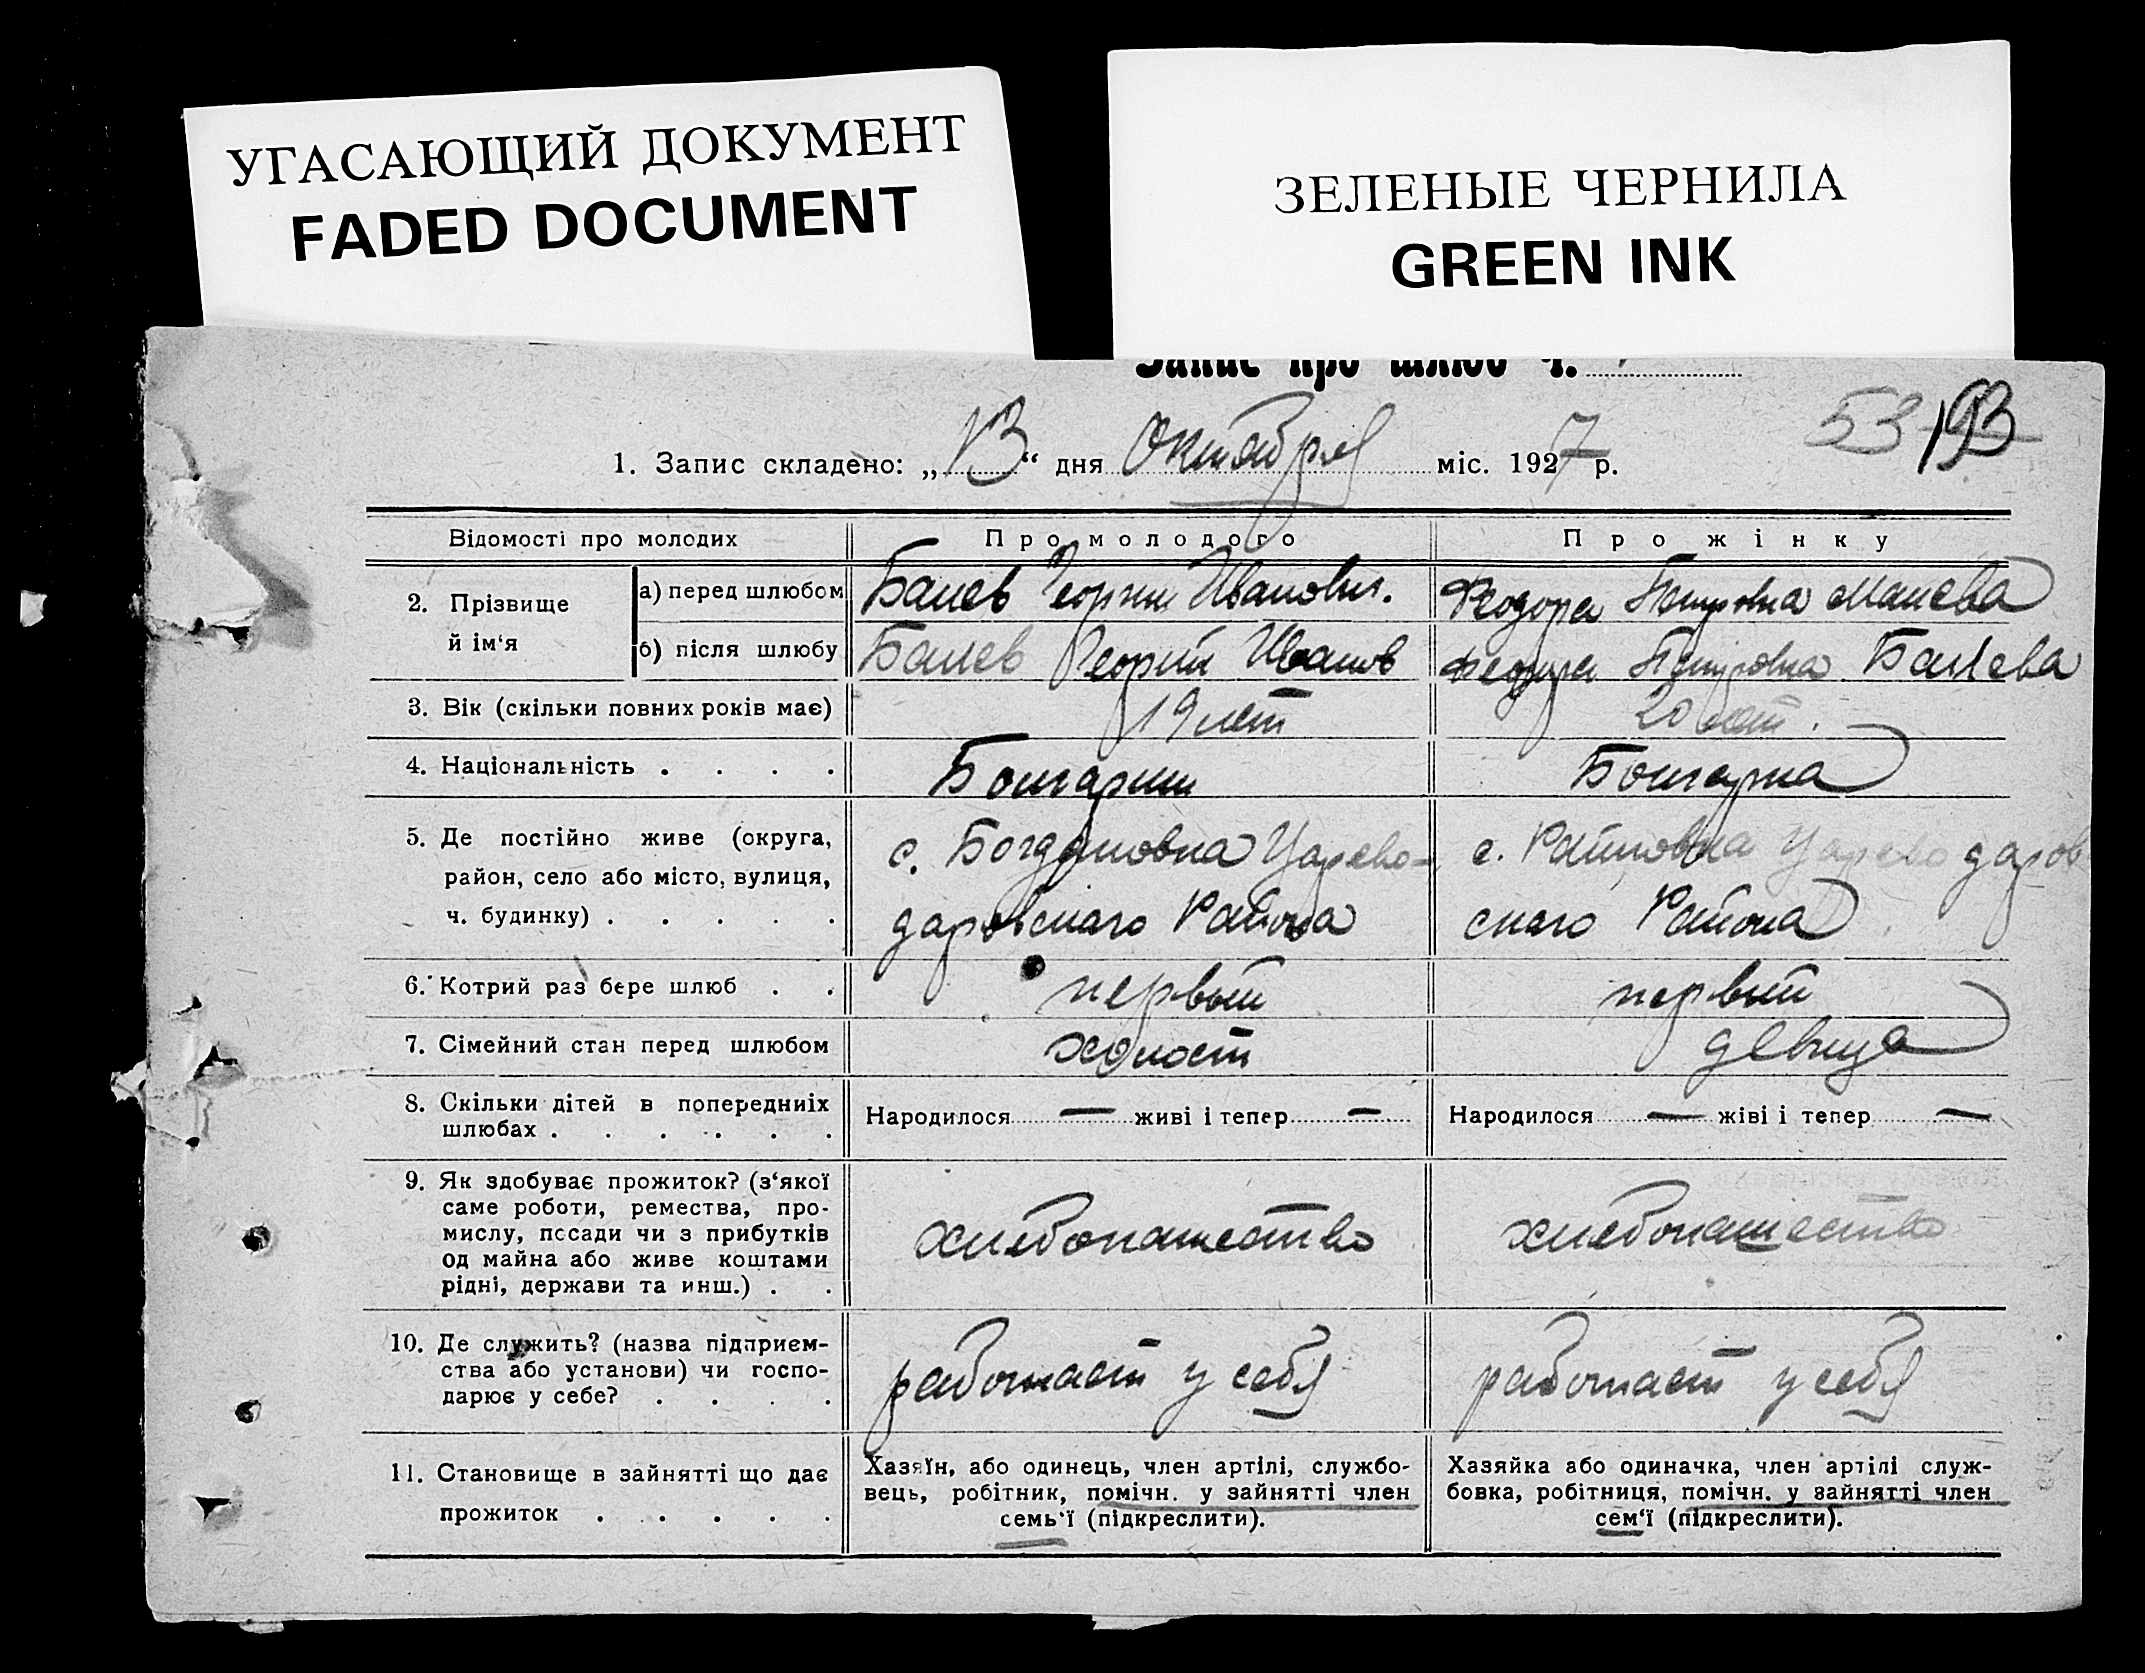 УГАСАЮЩИЙ ДОКУМЕНТ
FADED DOCUMENT
ЗЕЛЕНЫЕ ЧЕРНИЛА
GREEN INK
Запис про шлюб ч.
53 193
1. Запис складено: „13“ дня Октября міс. 1927 р.
Відомості про молодих
Про молодого
Про жінку
2. Прізвище й ім‘я
а) перед шлюбом
Георгий Иванович.
Феодора Петровна
б) після шлюбу
Георгий Иванов
Феодора Петровна
3. Вік (скільки повних років має)
19 лет
20 лет.
4. Національність . . . .
Болгарин
Болгарка
5. Де постійно живе (округа,
район, село або місто, вулиця,
ч. будинку) . . . . .
с. Богдановка Царево-
даровского Района
с. Райновка Царедаров
ского Района
6. Котрий раз бере шлюб . .
первый
первый
7. Сімейний стан перед шлюбом
холост
девица
8. Скільки дітей в попередниіх
шлюбах . . . . . .
Народилося — живі і тепер —
Народилося — жіві і тепер —
9. Як здобуває прожиток? (з‘якої
саме роботи, ремества, про-
мислу, посади чи з прибутків
од майна або живе коштами
рідні, держави та инш.) . .
хлебопашество
хлебопашество
10. Де служить? (назва підприєм-
ства або установи) чи госпо-
дарює у себе? . . . .
работает у себя
работает у себя
11. Становище в зайнятті що дає
прожиток . . . . .
Хазяїн, або одинець, член артілі, службо-
вець, робітник, помічн. у зайнятті член
семь‘ї (підкреслити).
Хазяйка або одиначка, член артілі служ-
бовка, робітниця, помічн. у зайнятті член
сем‘ї (підкреслити).